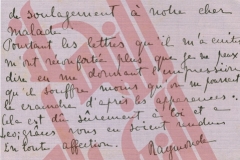 de soulagement à notre cher
malade.
Pourtant les lettres qu'il m'a écrites
m'ont réconfortée plus que je ne peux
dire en me donnant l'impression
qu'il souffre moins qu'on ne pouvait
le craindre d'après les apparences.
Cela est dû sûrement à toi et
grâces vous en soient rendues
En toute affection.